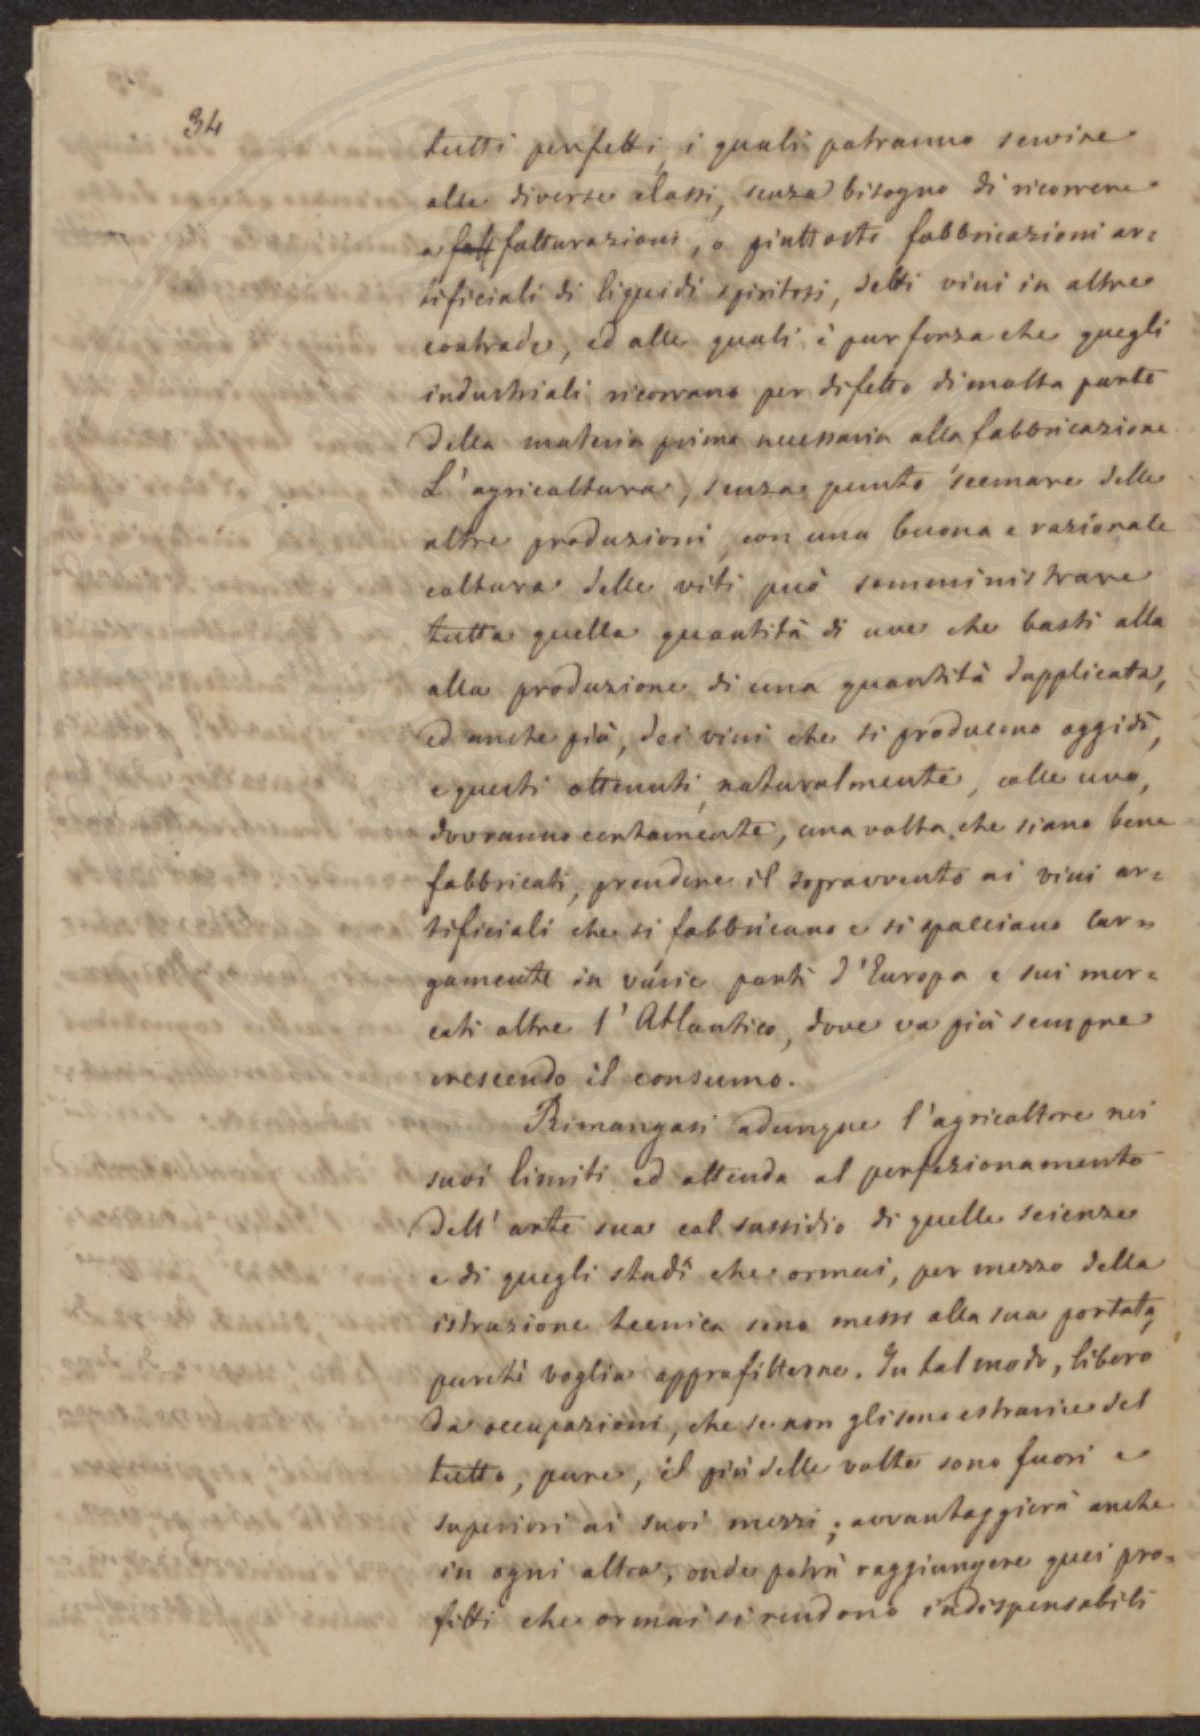 34
tutti perfetti, i quali potranno servire
alle diverse classi, senza bisogno di ricorrere
a fatturazioni, o piuttosto fabbricazioni ar=
tificiali di liquidi spiritosi, detti vini in altre
contrade, ed alle quali è pur forza che quegli
industriali ricorrano per difetto di molta parte
della materia prima necessaria alla fabbricazione.
L'agricoltura, senza punto scemare delle
altre produzioni, con una buona e razionale
coltura delle viti può somministrare
tutta quella quantità di uve che basti alla
alla produzione di una quantità dupplicata,
ed anche più, dei vini che si producono oggidì,
e questi ottenuti, naturalmente, colle uve,
dovranno certamente, una volta che siano bene
fabbricati, prendere il sopravvento ai vini ar=
tificiali che si fabbricano e si spacciano lar=
gamente in varie parti d'Europa e sui mer=
cati oltre l'Atlantico, dove va più sempre
crescendo il consumo.
Rimangasi adunque l'agricoltore nei
suoi limiti ed attenda al perfezionamento
dell'arte sua col sussidio di quelle scienze
e di quegli studî che ormai, per mezzo della
istruzione tecnica sono messi alla sua portata,
purchè voglia approfittarne. In tal modo, libero
da occupazioni, che se non gli sono estranie del
tutto, pure, il più delle volte sono fuori e
superiori ai suoi mezzi; avvantaggierà anche
in ogni altra, onde potrà raggiungere quei pro=
fitti che ormai si rendono indispensabili